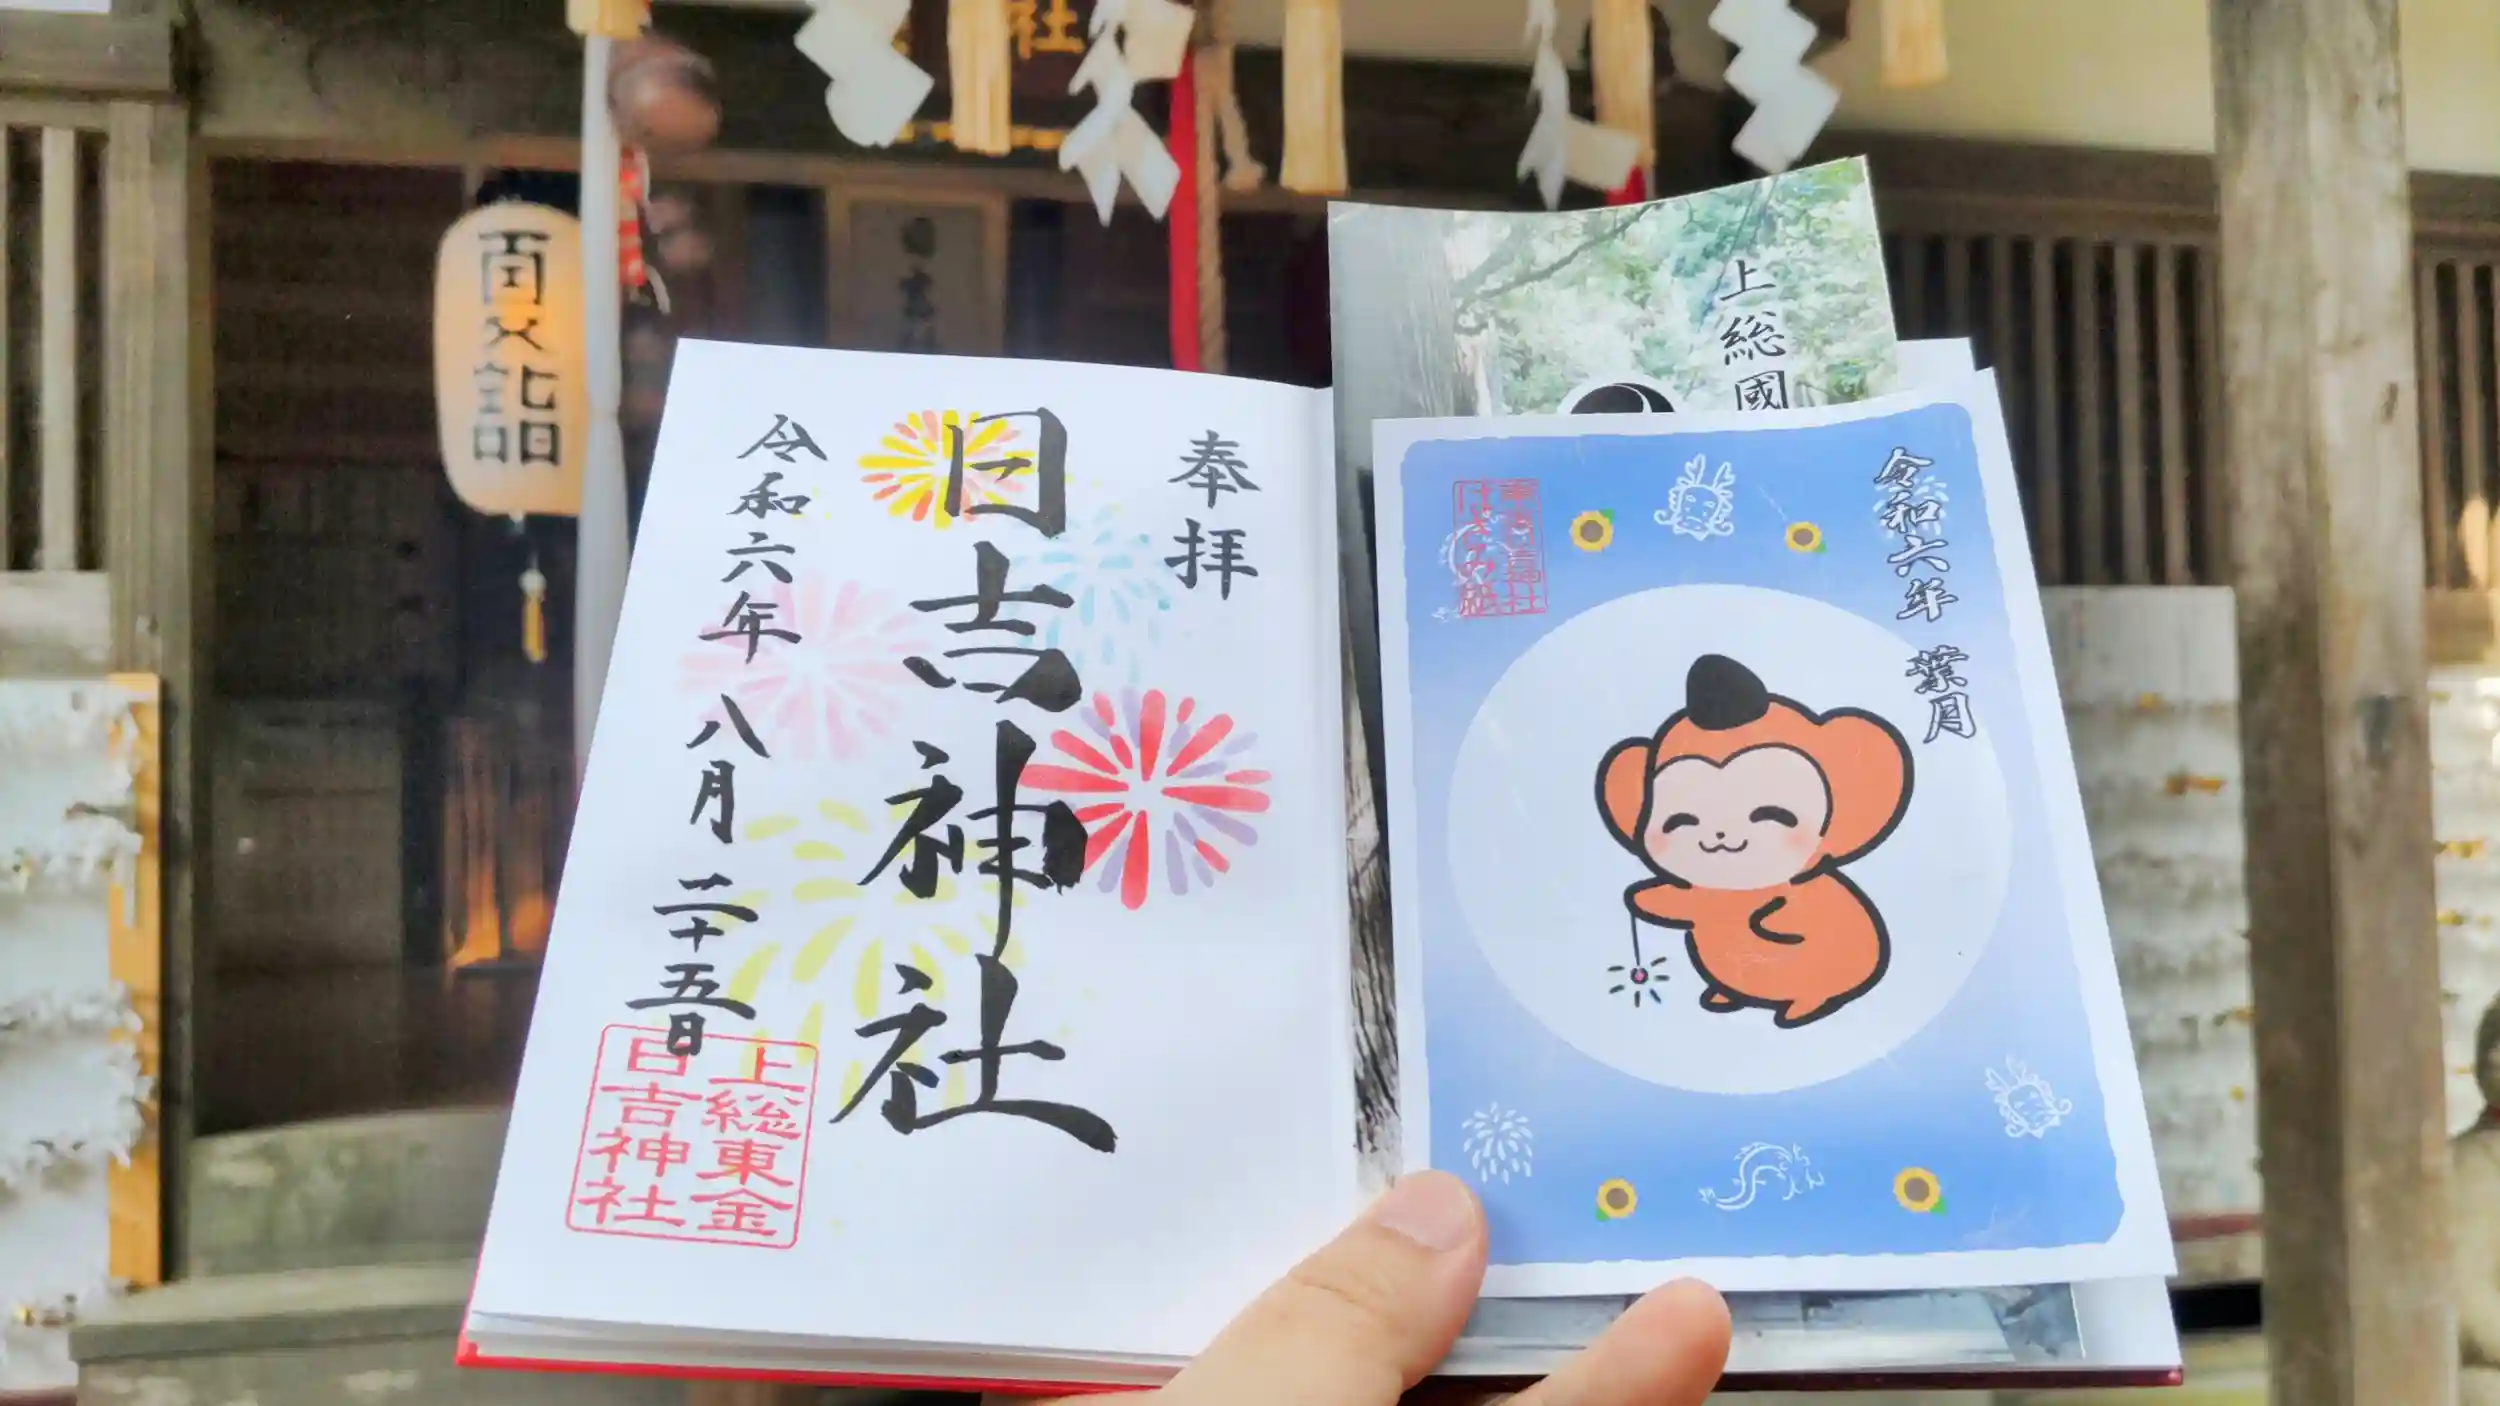 社
日吉
奉拝
日吉神社
令和六年 八月 二十五日
上総東金
日吉神社
上総國
令和六年 葉月